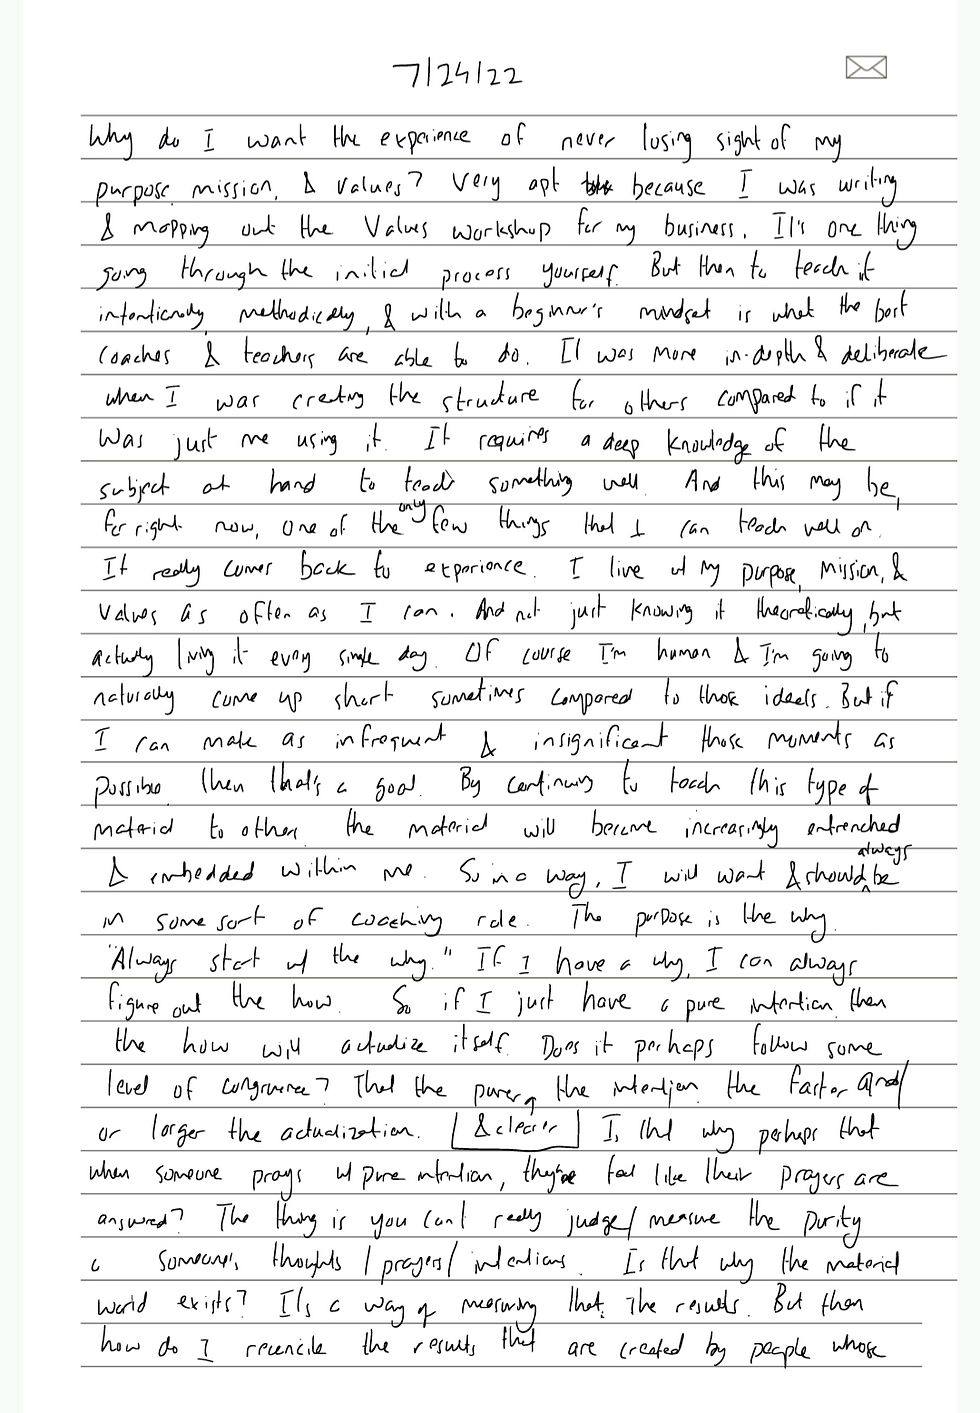 7/24/22
Why do I want the experience of never losing sight of my
purpose, mission, & values? Very apt because I was writing
& mapping out the Values workshop for my business. It's one thing
going through the initial process yourself. But then to teach it
intentionally, methodically, & with a beginner's mindset is what the best
coaches & teachers are able to do. It was more in-depth & deliberate
when I was creating the structure for others compared to if it
was just me using it. It requires a deep knowledge of the
subject at hand to teach something well. And this may be,
for right now, one of the only few things that I can teach well on.
It really comes back to experience. I live w/ my purpose, mission, &
values as often as I can. And not just knowing it theoretically, but
actually living it every single day. Of course I'm human & I'm going to
naturally come up short sometimes compared to those ideals. But if
I can make as infrequent & insignificant those moments as
possible then that's a goal. By continuing to teach this type of
material to others the material will become increasingly entrenched
& embedded within me. So in a way, I will want & should always be
in some sort of coaching role. The purpose is the why.
"Always start w/ the why." If I have a why, I can always
figure out the how. So if I just have a pure intention then
the how will actualize itself. Does it perhaps follow some
level of congruence? That the purer & clearer the intention the faster and/
or larger the actualization. Is that why perhaps that
when someone prays w/ pure intention, they feel like their prayers are
answered? The thing is you can't really judge/measure the purity
someone's thoughts/prayers/intentions. Is that why the material
world exists? It's a way of measuring that. The results. But then
how do I reconcile the results that are created by people whose